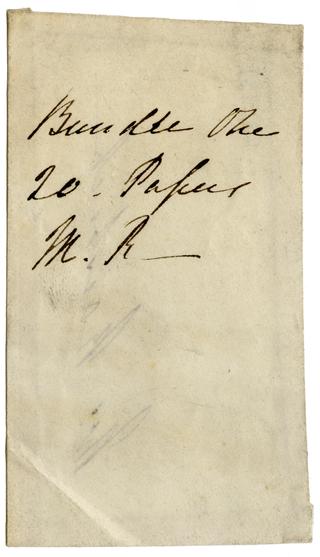 Bundle One
20 - Papers
M. R —